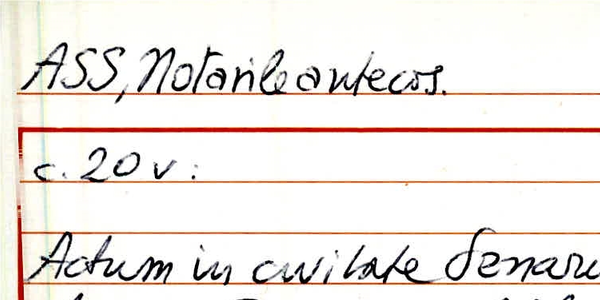 ASS, Notarile antecos.
c. 20 v:
Actum in civitate Senaru